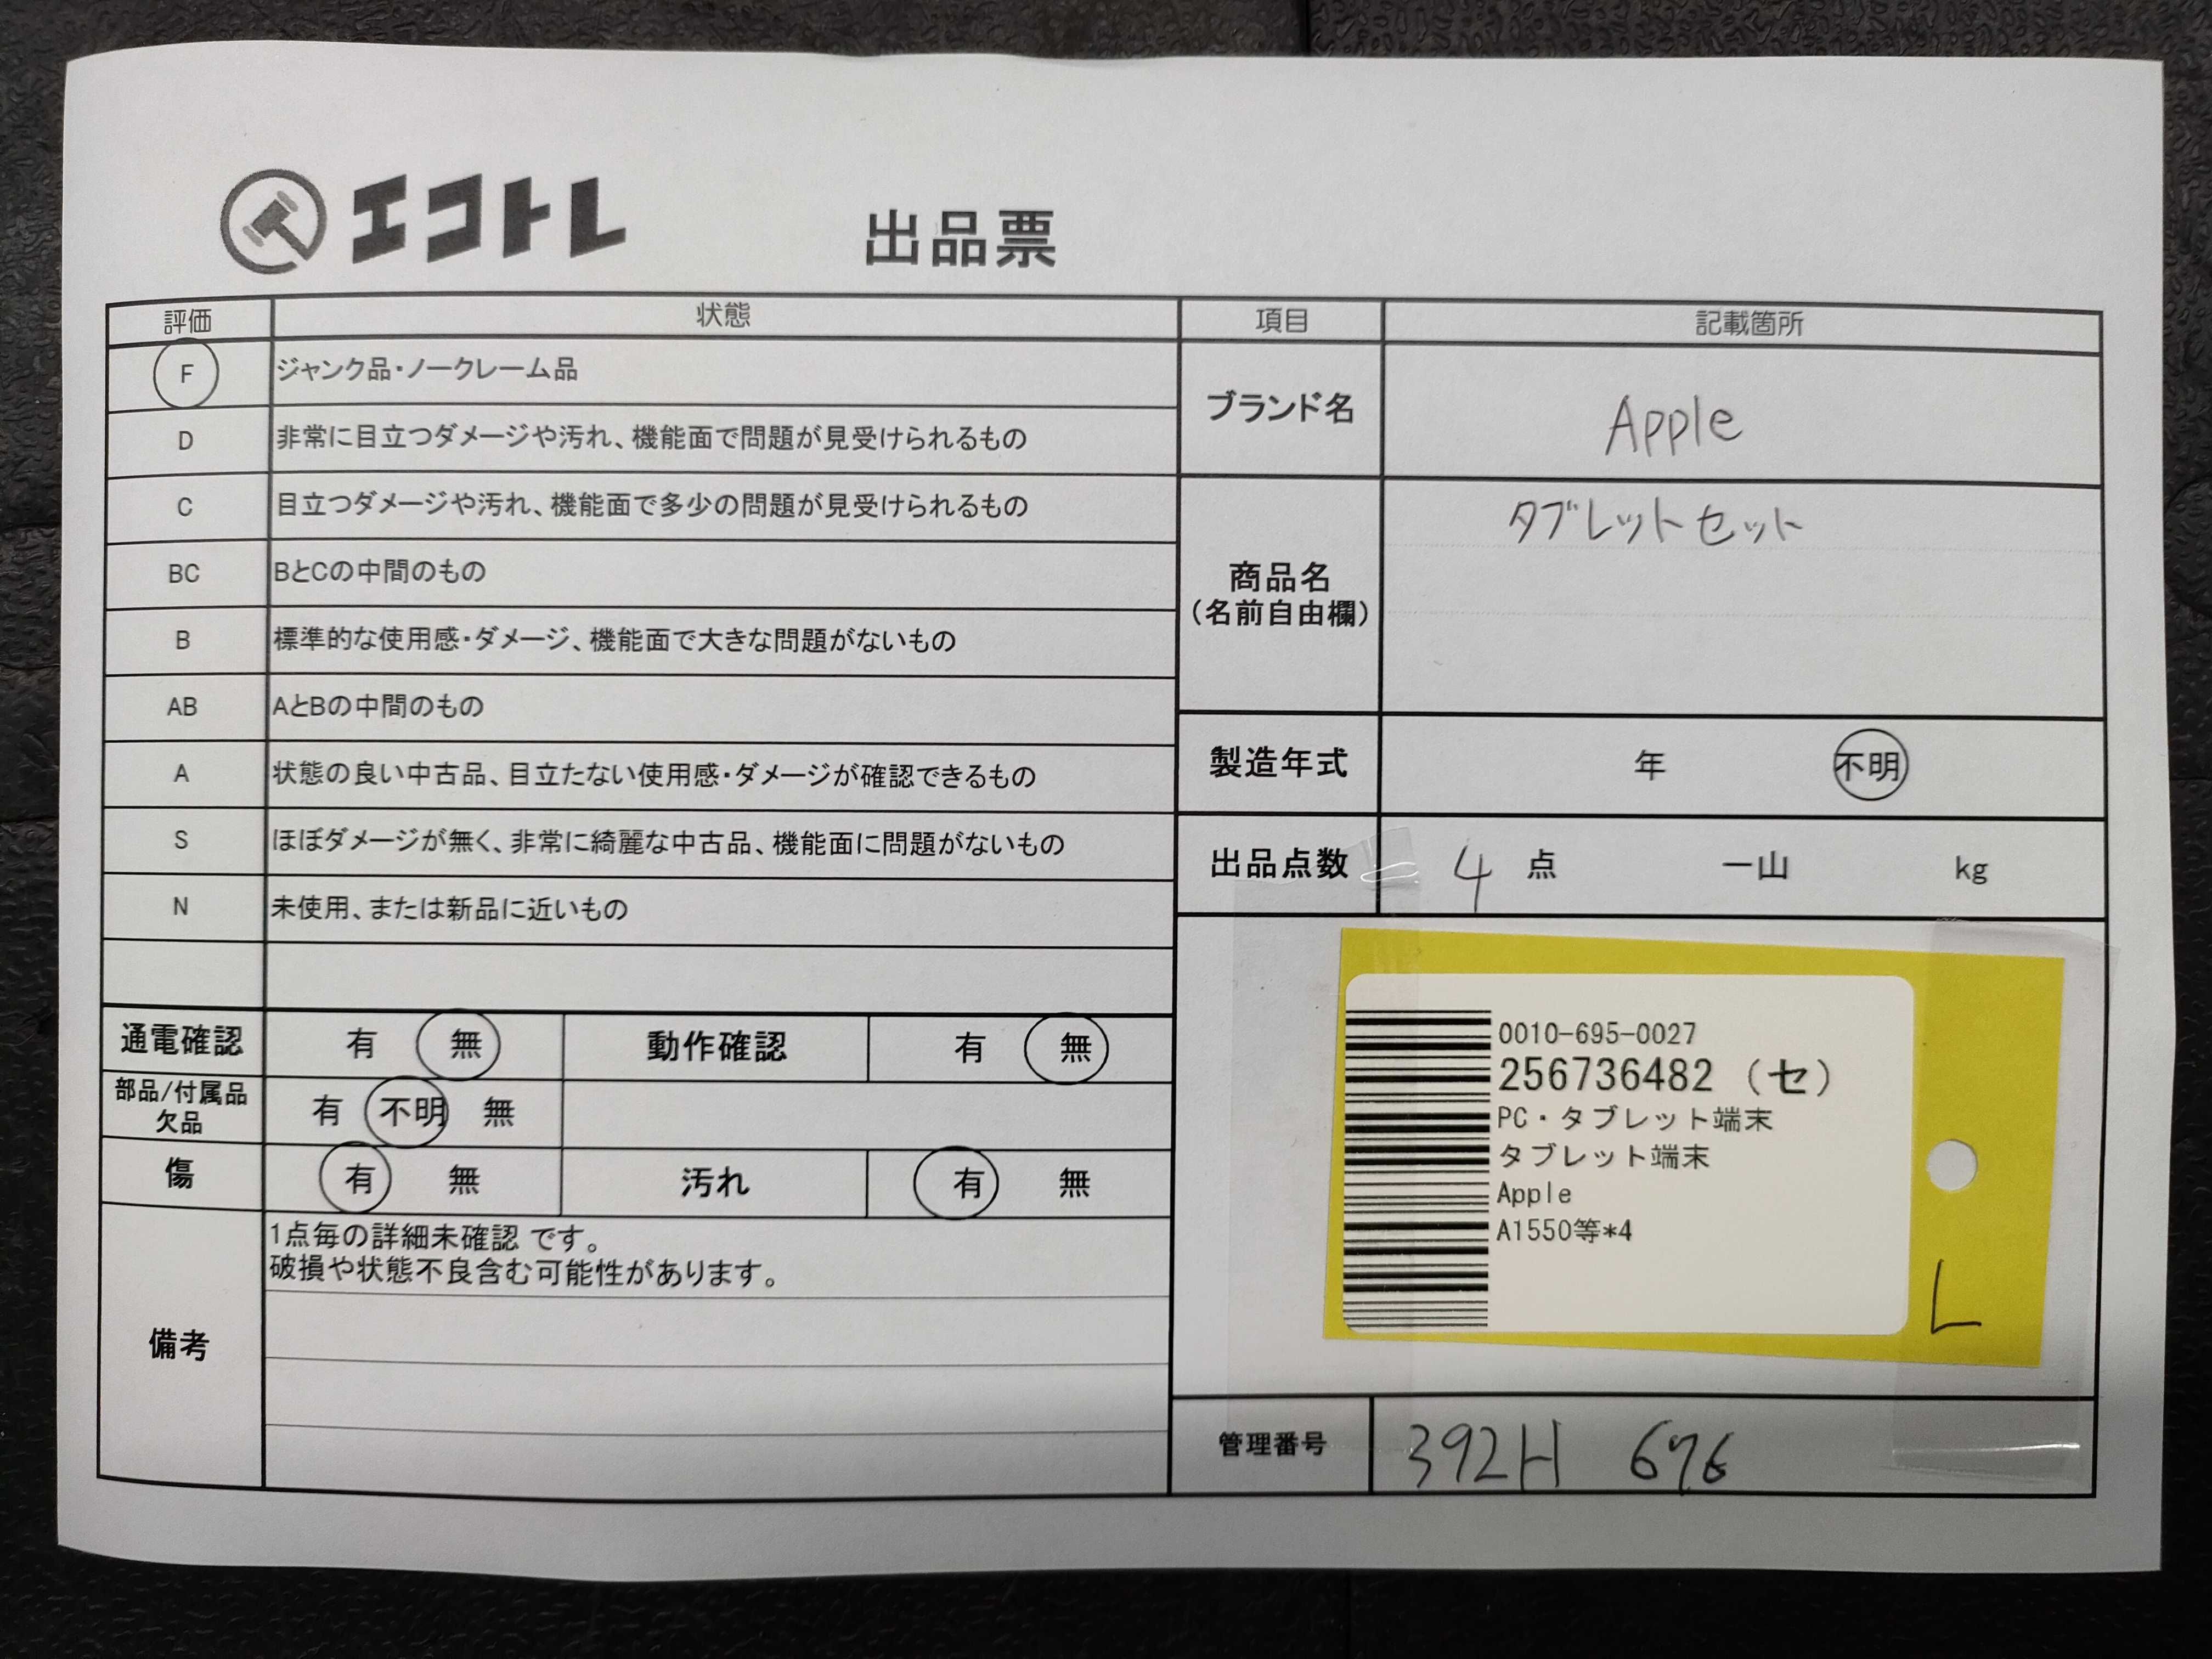 エコトレ
出品票
評価 状態
F ジャンク品・ノークレーム品
D 非常に目立つダメージや汚れ、機能面で問題が見受けられるもの
C 目立つダメージや汚れ、機能面で多少の問題が見受けられるもの
BC BとCの中間のもの
B 標準的な使用感・ダメージ、機能面で大きな問題がないもの
AB AとBの中間のもの
A 状態の良い中古品、目立たない使用感・ダメージが確認できるもの
S ほぼダメージが無く、非常に綺麗な中古品、機能面に問題がないもの
N 未使用、または新品に近いもの
通電確認 有 無 動作確認 有 無
部品/付属品
欠品 有 不明 無
傷 有 無 汚れ 有 無
備考
1点毎の詳細未確認 です。
破損や状態不良含む可能性があります。
項目 記載箇所
ブランド名 Apple
商品名
(名前自由欄)
タブレットセット
製造年式 年 不明
出品点数 4 点 一山 kg
0010-695-0027
256736482 (セ)
PC・タブレット端末
タブレット端末
Apple
A1550等*4
L
管理番号 392H 676